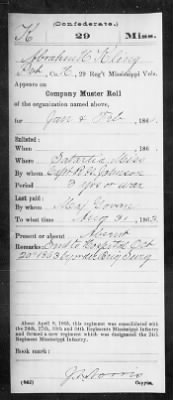 (Confederate.)
K 29 Miss.
Abraham K. King
Co. K, 29 Reg't Mississippi Vols.
Appears on
Company Muster Roll
of the organization named above,
for Jan & Feb, 186
Enlisted:
When 186 .
Where Satartia, Miss
By whom Capt. Johnson
Period 3 yrs or war
Last paid:
By whom Maj. Gowan
To what time Aug 31, 1863.
Present or absent Absent
Remarks: Sent to Hospital Oct
20 1863 by order Brig Surg
About April 9, 1865, this regiment was consolidated with
the 24th, 27th, 30th and 34th Regiments Mississippi Infantry
and formed a new regiment which was designated the 24th
Regiment Mississippi Infantry.
Book mark:
(642)
Copyist.